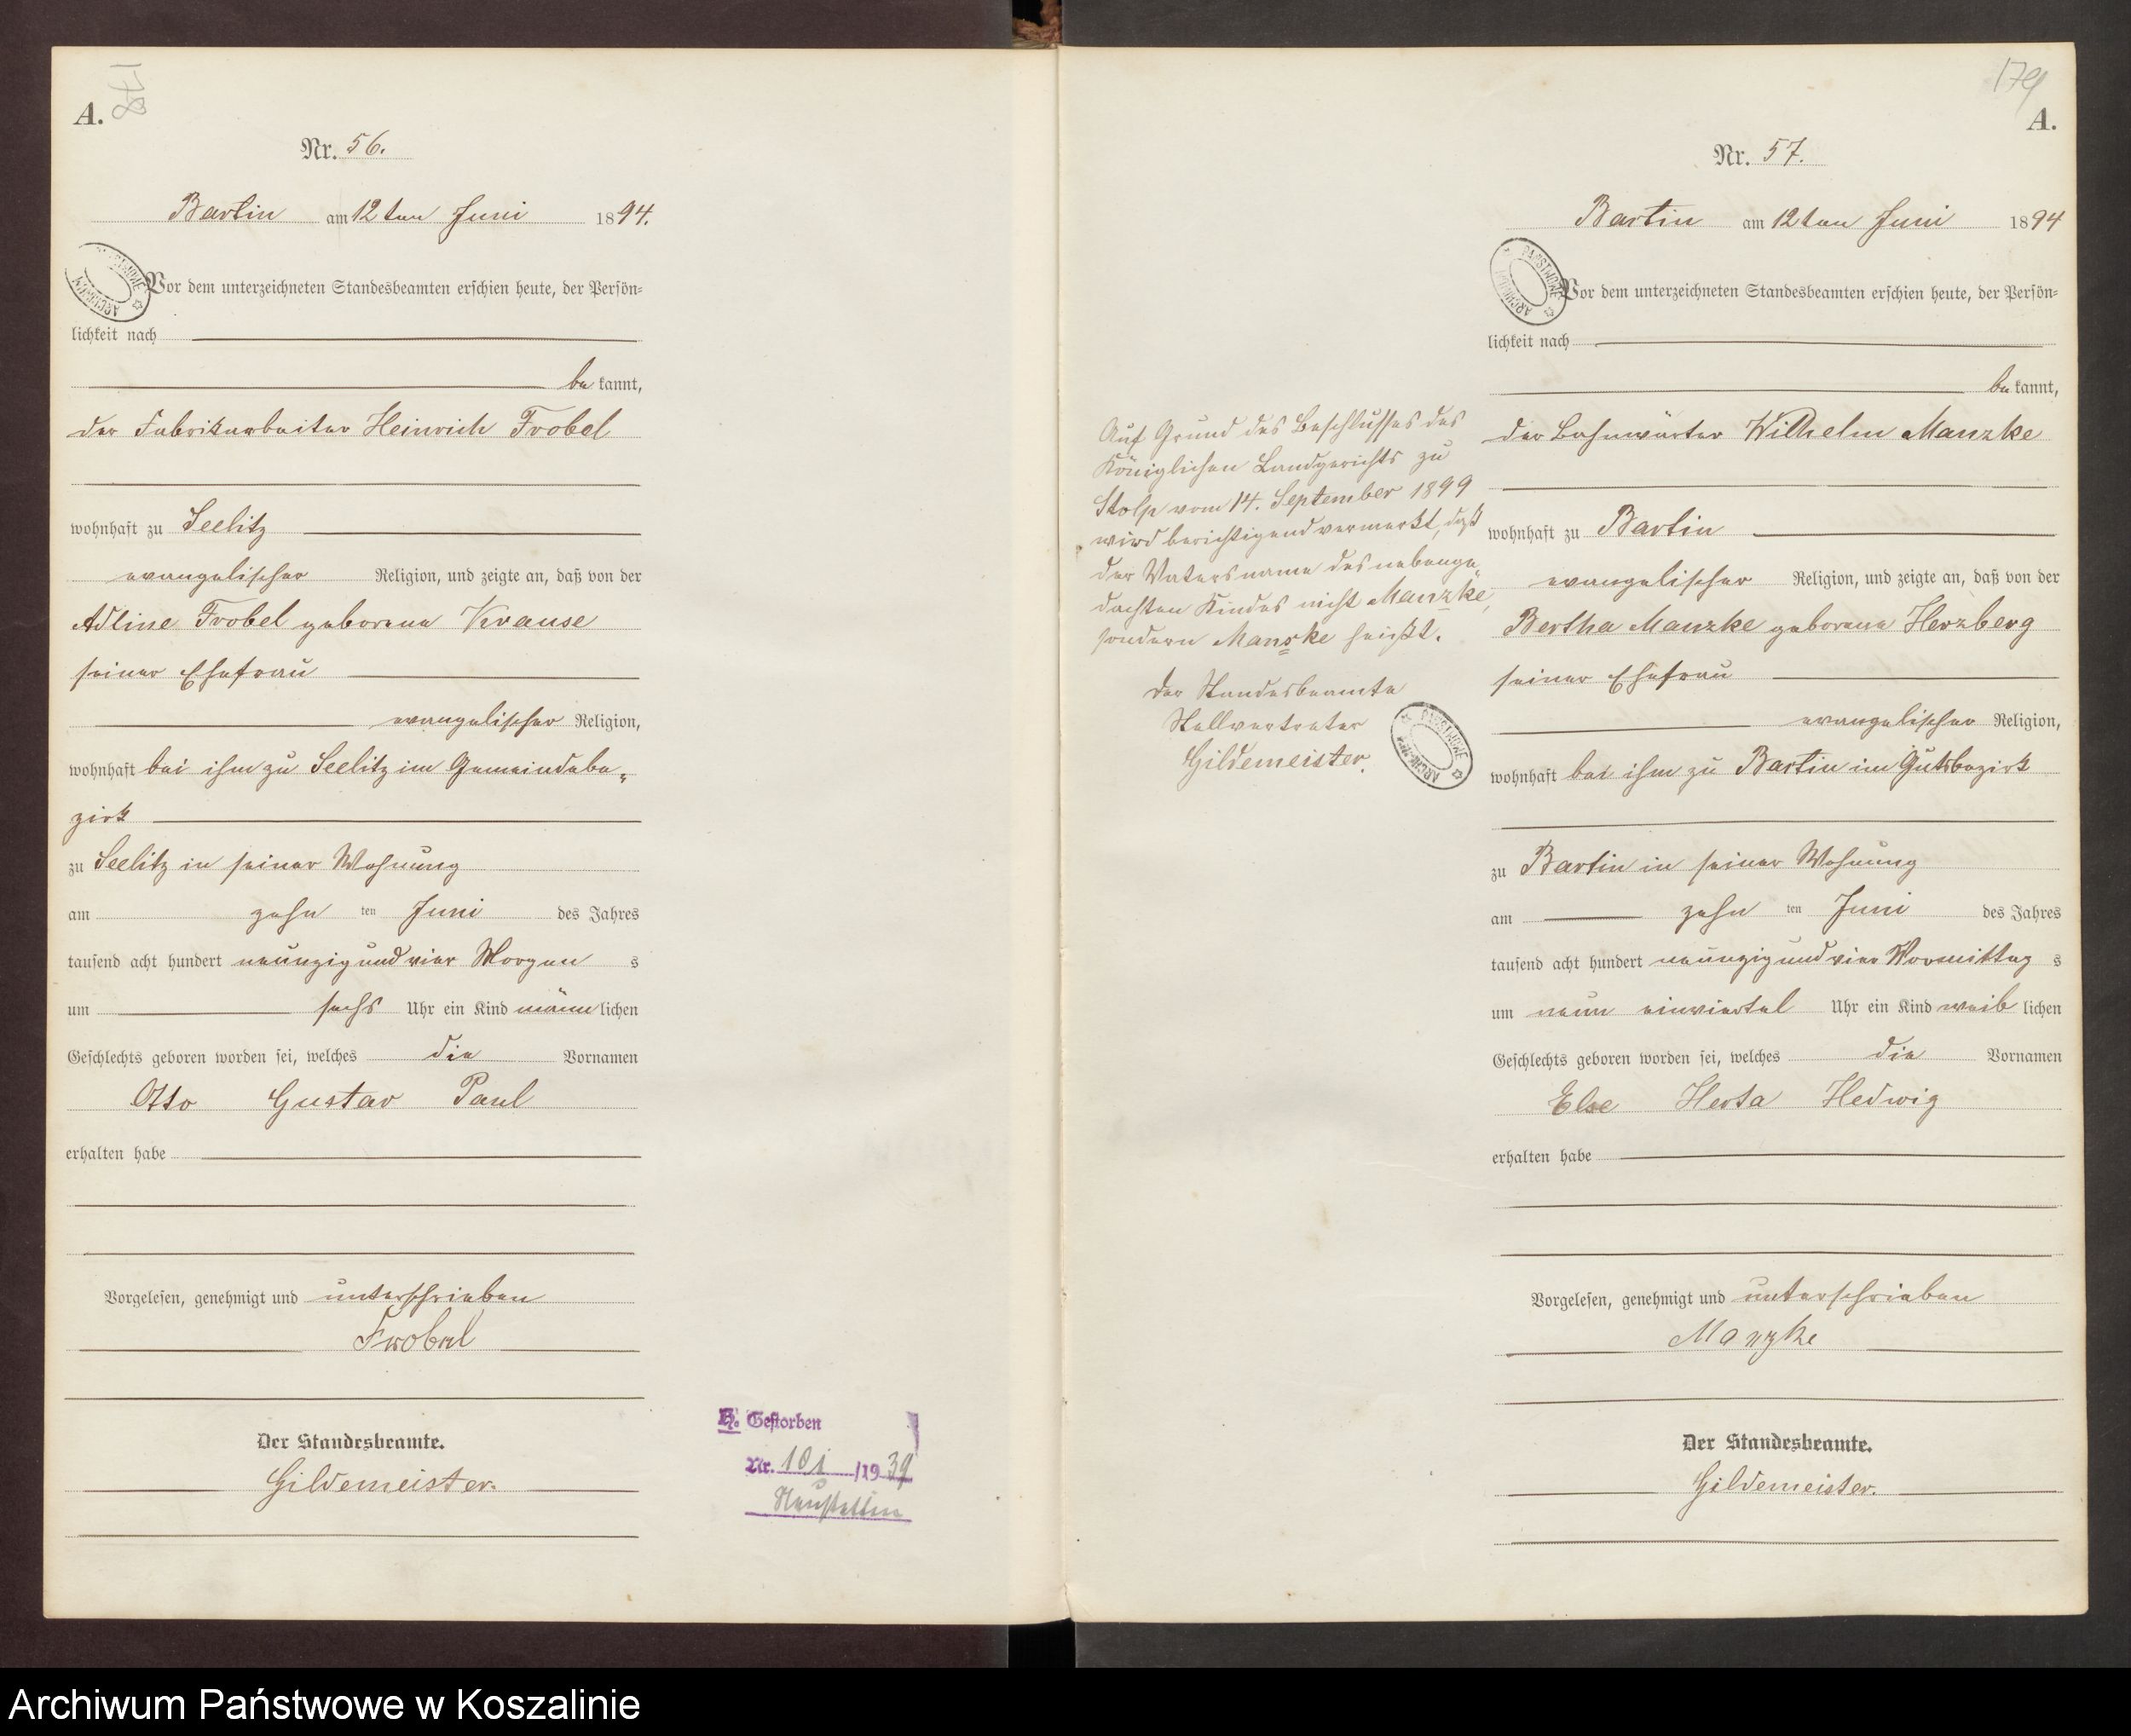 178
A.
Nr. 56.
Bartin am 12ten Juni 1894.
Vor dem unterzeichneten Standesbeamten erschien heute, der Persön-
lichkeit nach
bekannt,
der Fabrikarbeiter Heinrich Frobel
wohnhaft zu Seelitz
evangelischer Religion, und zeigte an, daß von der
Adline Frobel geborene Krause
seiner Ehefrau
evangelischer Religion,
wohnhaft bei ihm zu Seelitz im Gemeindebe-
zirk
zu Seelitz in seiner Wohnung
am zehn ten Juni des Jahres
tausend acht hundert neunzig und vier Morgens
um sechs Uhr ein Kind männlichen
Geschlechts geboren worden sei, welches die Vornamen
Otto Gustav Paul
erhalten habe
Vorgelesen, genehmigt und unterschrieben
Frobel
Der Standesbeamte.
Gildemeister.
Gestorben
Nr. 101 /1939
Auf Grund des Beschlusses des
Königlichen Landgerichts zu
Stolp vom 14. September 1899
wird berichtigend vermerkt, daß
der Vatersname des nebenge-
dachten Kindes nicht Manzke,
sondern Manske heißt.
Der Standesbeamte
Stellvertreter
Gildemeister.
ARCHIWUM PAŃSTWOWE
179
A.
Nr. 57.
Bartin am 12ten Juni 1894
Vor dem unterzeichneten Standesbeamten erschien heute, der Persön-
lichkeit nach
bekannt,
der Bahnwärter Wilhelm Manzke
wohnhaft zu Bartin
evangelischer Religion, und zeigte an, daß von der
Bertha Manzke geborene Herzberg
seiner Ehefrau
evangelischer Religion,
wohnhaft bei ihm zu Bartin im Gutsbezirk
zu Bartin in seiner Wohnung
am zehn ten Juni des Jahres
tausend acht hundert neunzig und vier Vormittags
um neun einviertel Uhr ein Kind weiblichen
Geschlechts geboren worden sei, welches die Vornamen
Else Herta Hedwig
erhalten habe
Vorgelesen, genehmigt und unterschrieben
Manzke
Der Standesbeamte.
Gildemeister.
Archiwum Państwowe w Koszalinie